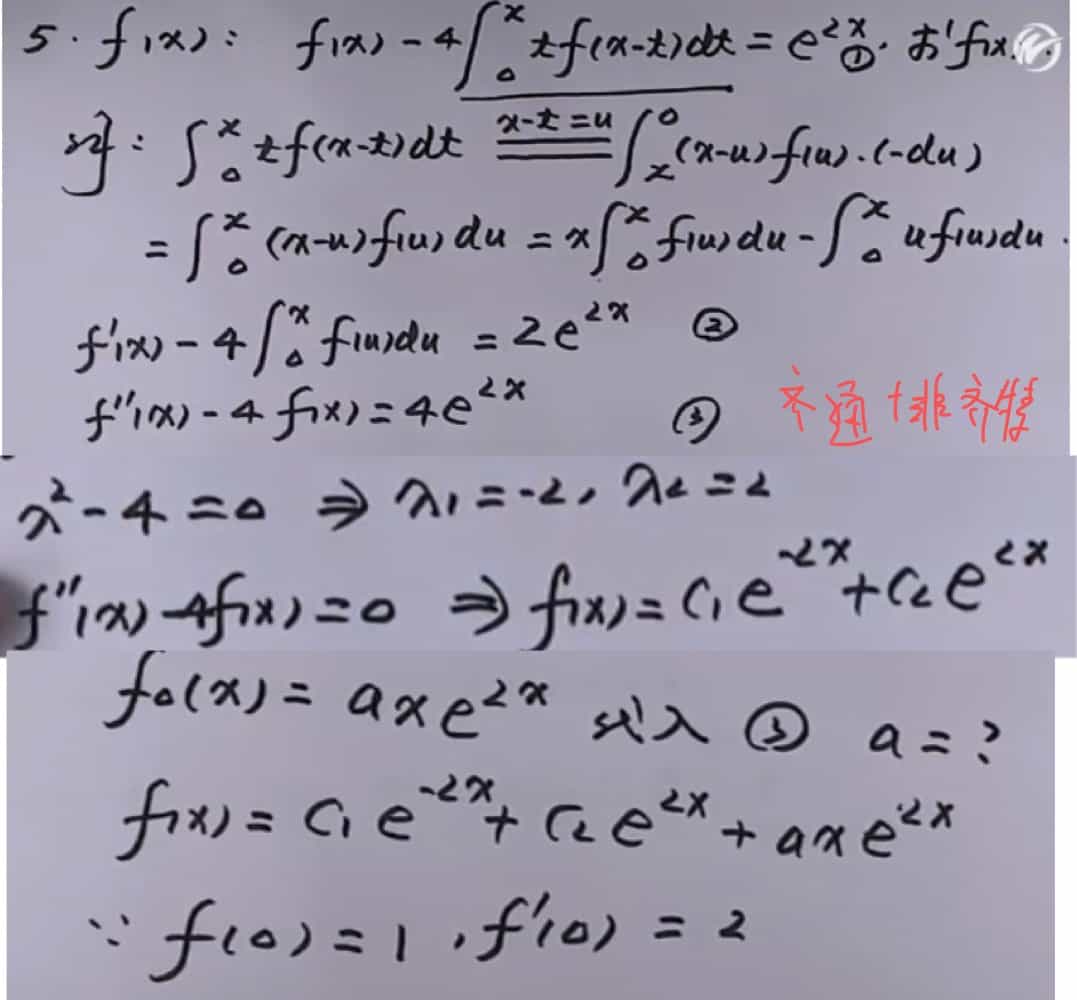 5. f(x): f(x) - 4∫₀ˣ tf(x-t)dt = e²ˣ ①. 求f(x).
解: ∫₀ˣ tf(x-t)dt x-t=u ∫ₓ⁰ (x-u)f(u)·(-du)
= ∫₀ˣ (x-u)f(u)du = x∫₀ˣ f(u)du - ∫₀ˣ uf(u)du.
f'(x) - 4∫₀ˣ f(u)du = 2e²ˣ ②
f''(x) - 4f(x) = 4e²ˣ ③ 齐通+非齐特
λ² - 4 = 0 ⇒ λ₁ = -2, λ₂ = 2
f''(x) - 4f(x) = 0 ⇒ f(x) = C₁e⁻²ˣ + C₂e²ˣ
f₀(x) = axe²ˣ 代入 ③ a = ?
f(x) = C₁e⁻²ˣ + C₂e²ˣ + axe²ˣ
∵ f(0) = 1, f'(0) = 2